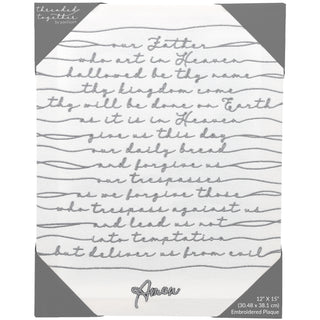 threaded
together
by pavilion
our Father
who art in Heaven
hallowed be thy name
thy kingdom come
thy will be done on Earth
as it is in Heaven
give us this day
our daily bread
and forgive us
our trespasses
as we forgive those
who trespass against us
and lead us not
into temptation
but deliver us from evil
Amen
12" X 15"
(30.48 x 38.1 cm)
Embroidered Plaque